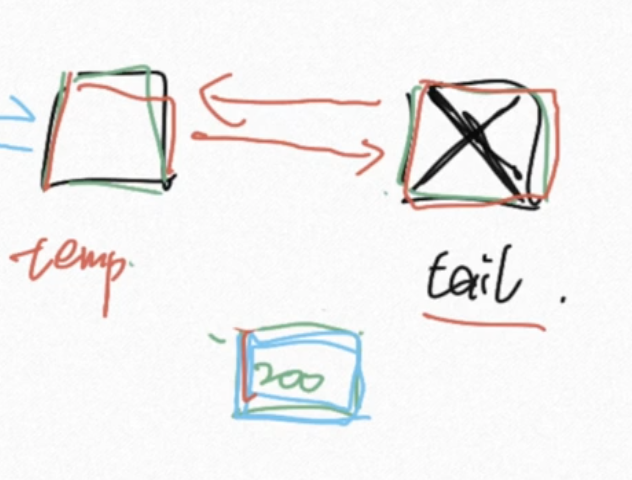 temp
tail.
200